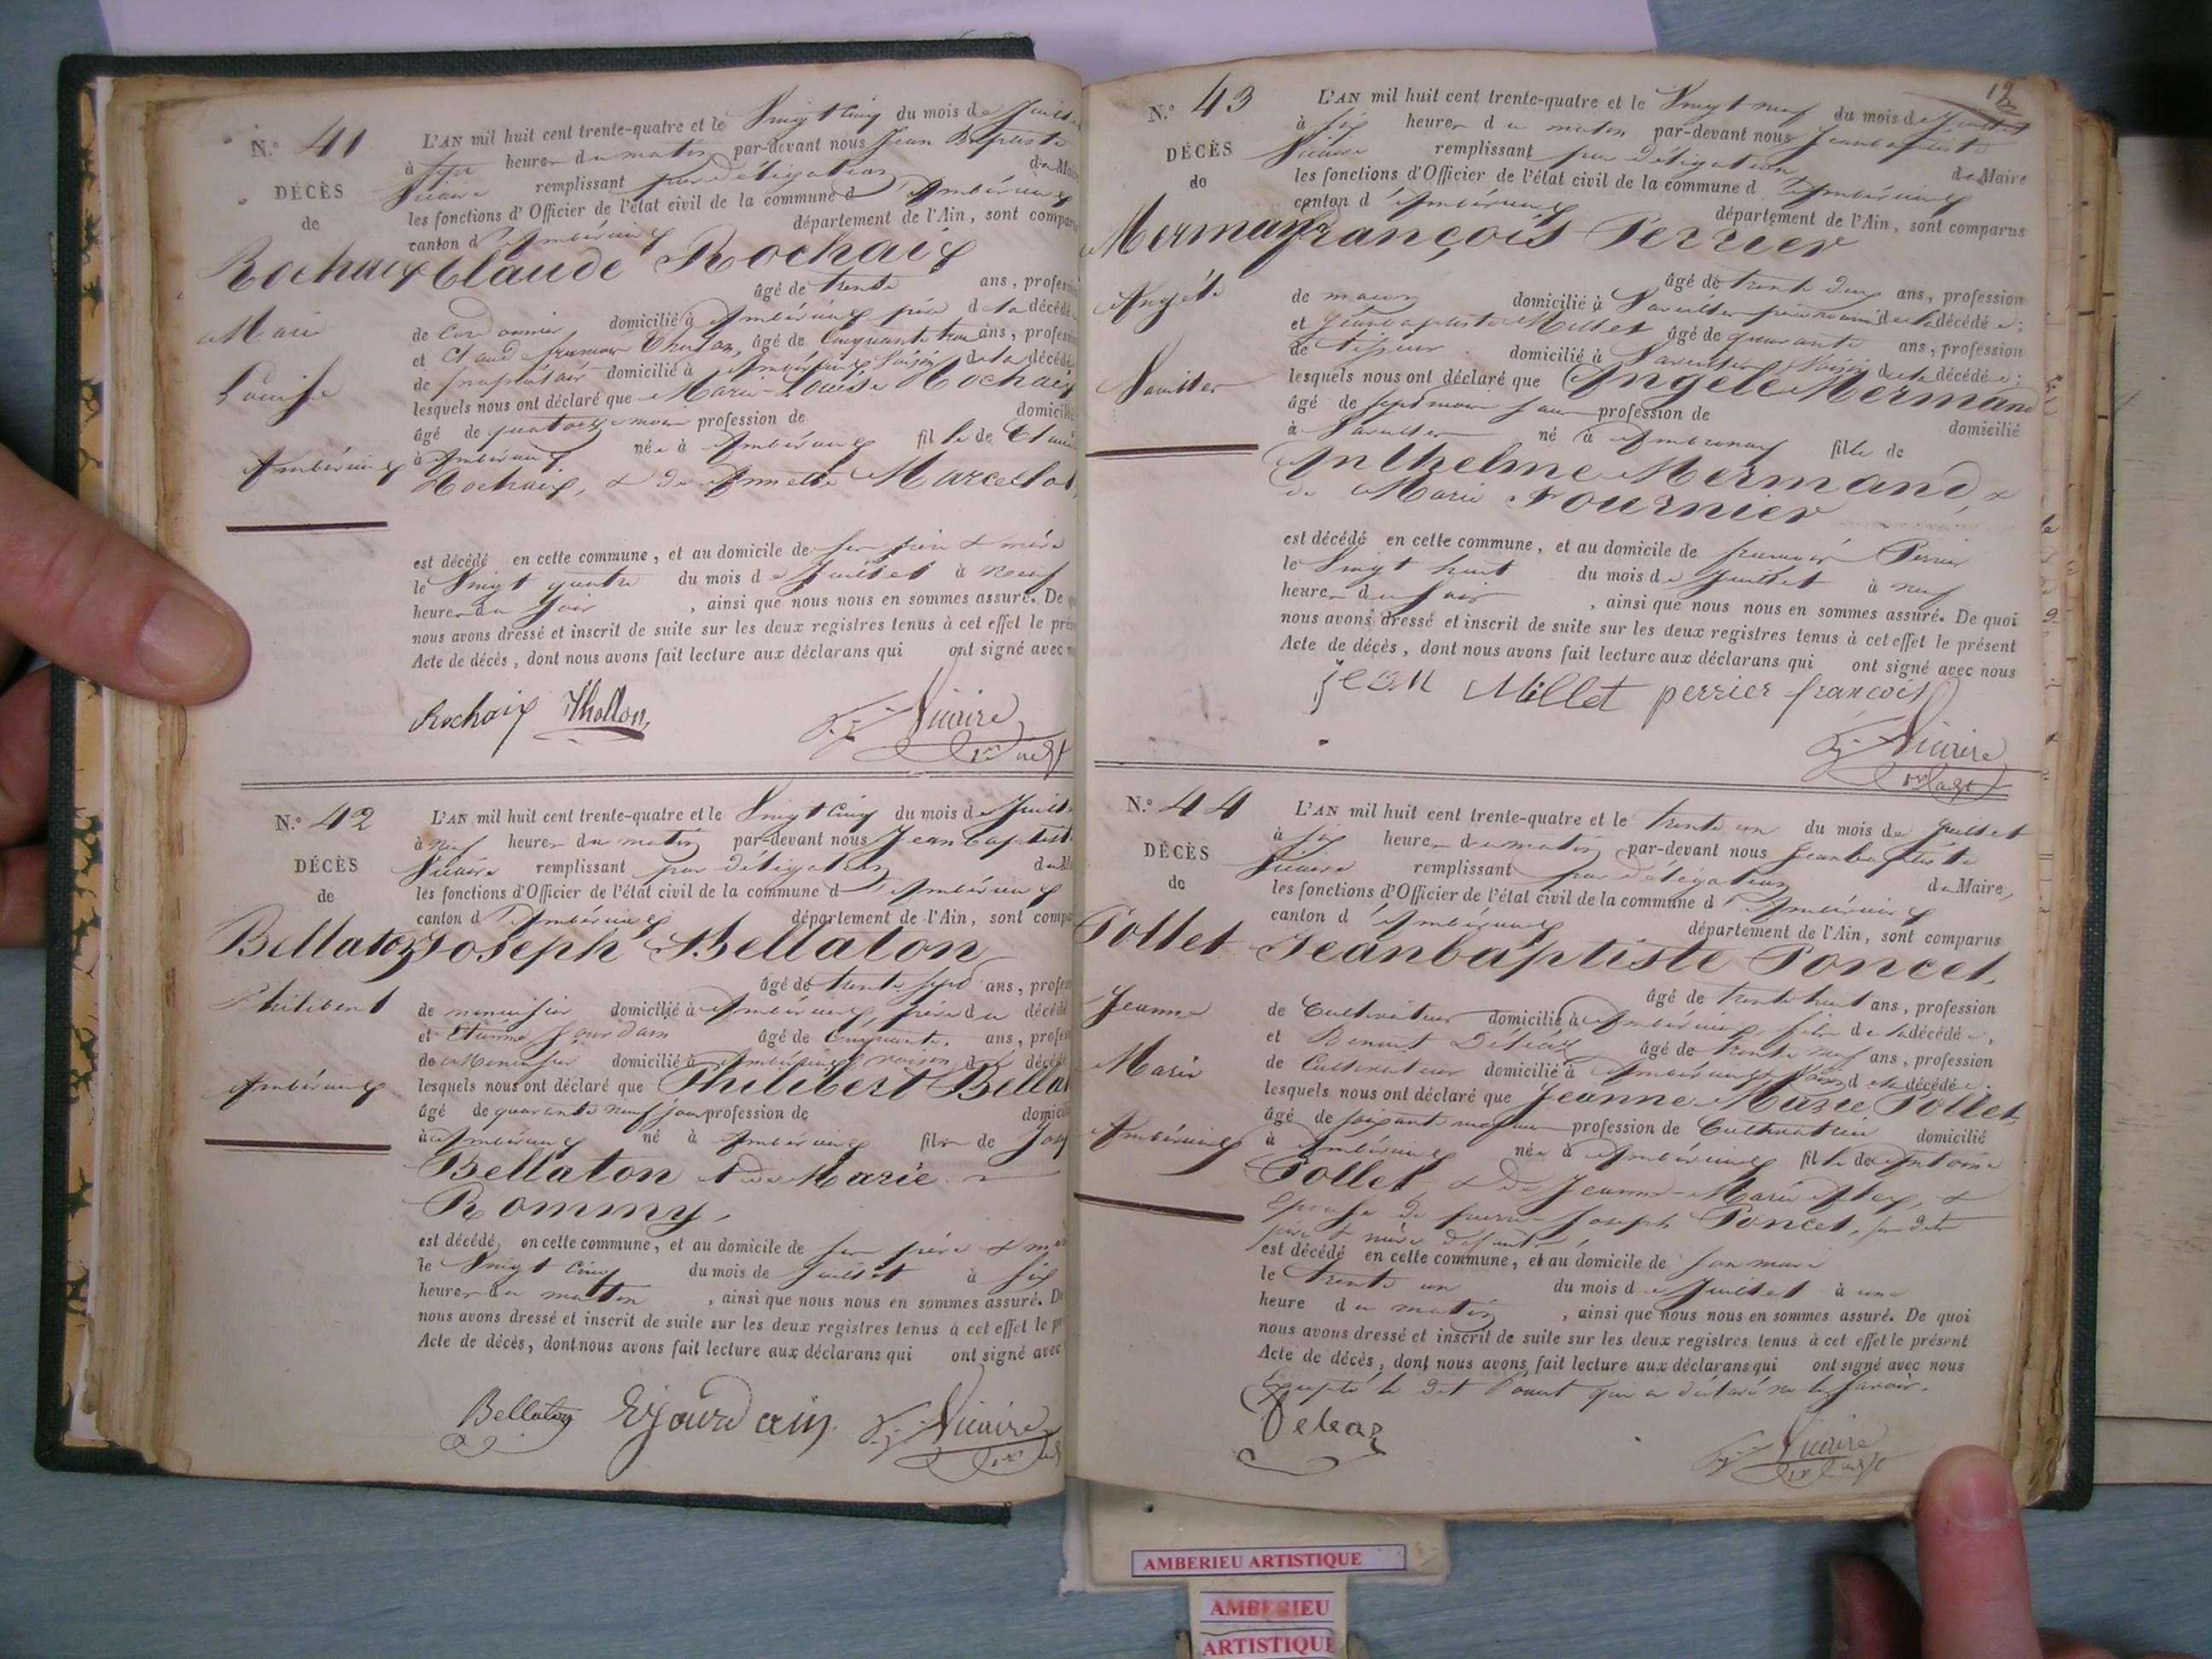 N.° 41
DÉCÈS
de
Rochaix
Marie
Louise
Ambérieux
L'AN mil huit cent trente-quatre et le Vingt Cinq du mois de Juillet
à Sept heures du matin par-devant nous Jean Baptiste
Vicaire remplissant par délégation du Maire
les fonctions d'Officier de l'état civil de la commune d'Ambérieux
canton d'Ambérieux département de l'Ain, sont comparus
Claude Rochaix
âgé de trente ans, profession
de Cordonnier, domicilié à Ambérieux père de la décédée
et Claude françois Thollon, âgé de Cinquante trois ans, profession
de propriétaire domicilié à Ambérieux Voisin de la décédée
lesquels nous ont déclaré que Marie-Louise Rochaix
âgé de quatorze mois profession de domicilié
à Ambérieux née à Ambérieux fille de Claude
Rochaix, & de Annette Marcellot,
est décédé en cette commune, et au domicile de ses père & mère
le Vingt quatre du mois de Juillet à Neuf
heures du Soir, ainsi que nous nous en sommes assuré. De
nous avons dressé et inscrit de suite sur les deux registres tenus à cet effet le
Acte de décès, dont nous avons fait lecture aux déclarans qui ont signé avec
Rochaix Thollon Vicaire
N.° 42
DÉCÈS
de
Bellaton
Philibert
Ambérieux
L'AN mil huit cent trente-quatre et le Vingt Cinq du mois de Juillet
à neuf heures du matin par-devant nous Jean Baptiste
Vicaire remplissant par délégation du
les fonctions d'Officier de l'état civil de la commune d'Ambérieux
canton d'Ambérieux département de l'Ain, sont comparus
Joseph Bellaton
âgé de trente Sept ans, profession
de menuisier domicilié à Ambérieux, père du décédé
et Etienne Jourdain âgé de Cinquante, ans, profession
de Menuisier domicilié à Ambérieux voisin du décédé
lesquels nous ont déclaré que Philibert Bellaton
âgé de quarante neuf jours profession de domicilié
à Ambérieux né à Ambérieux fils de Joseph
Bellaton & de Marie
Rommy,
est décédé, en cette commune, et au domicile de ses père & mère
le Vingt Cinq du mois de Juillet à Six
heures du matin, ainsi que nous nous en sommes assuré. De
nous avons dressé et inscrit de suite sur les deux registres tenus à cet effet le
Acte de décès, dont nous avons fait lecture aux déclarans qui ont signé avec
Bellaton Ejourdain. Vicaire
12
N.° 43
DÉCÈS
de
Mermand
Angèle
Vareilles
L'AN mil huit cent trente-quatre et le Vingt neuf du mois de Juillet
à Six heures du matin par-devant nous Jeanbaptiste
Vicaire remplissant par délégation du Maire
les fonctions d'Officier de l'état civil de la commune d'Ambérieux
canton d'Ambérieux département de l'Ain, sont comparus
françois Perrier
âgé de trente deux ans, profession
de maçon domicilié à Vareilles père nourricier de la décédée;
et Jeanbaptiste Millet âgé de quarante ans, profession
de tisseur domicilié à Vareilles Voisin de la décédée;
lesquels nous ont déclaré que Angèle Mermand
âgé de sept mois profession de domicilié
à Vareilles né à Ambronay fille de
Anthelme Mermand, &
de Marie Fournier
est décédé en cette commune, et au domicile de françois Perrier
le Vingt huit du mois de Juillet à neuf
heures du Soir, ainsi que nous nous en sommes assuré. De quoi
nous avons dressé et inscrit de suite sur les deux registres tenus à cet effet le présent
Acte de décès, dont nous avons fait lecture aux déclarans qui ont signé avec nous
jean Millet perrier françois
Vicaire
N.° 44
DÉCÈS
de
Pollet
Jeanne
Marie
Ambérieux
L'AN mil huit cent trente-quatre et le trente un du mois de Juillet
à Six heures du matin par-devant nous Jeanbaptiste
Vicaire remplissant par délégation du Maire,
les fonctions d'Officier de l'état civil de la commune d'Ambérieux
canton d'Ambérieux département de l'Ain, sont comparus
Jeanbaptiste Poncet,
âgé de trente huit ans, profession
de Cultivateur domicilié à Ambérieux, fils de la décédée,
et Benoit âgé de trente neuf ans, profession
de Cultivateur domicilié à Ambérieux Voisin de la décédée.
lesquels nous ont déclaré que Jeanne Marie Pollet,
âgé de profession de Cultivatrice domicilié
à Ambérieux née à Ambérieux fille de Antoine
Pollet & de Jeanne-Marie &
Epouse de pierre-Joseph Poncet,
père & mère défunts,
est décédé en cette commune, et au domicile de son mari
le trente un du mois de Juillet à une
heure du matin, ainsi que nous nous en sommes assuré. De quoi
nous avons dressé et inscrit de suite sur les deux registres tenus à cet effet le présent
Acte de décès, dont nous avons fait lecture aux déclarans qui ont signé avec nous
Excepté le dit Poncet qui a déclaré ne le Savoir.
Vicaire
AMBERIEU ARTISTIQUE
AMBERIEU
ARTISTIQUE